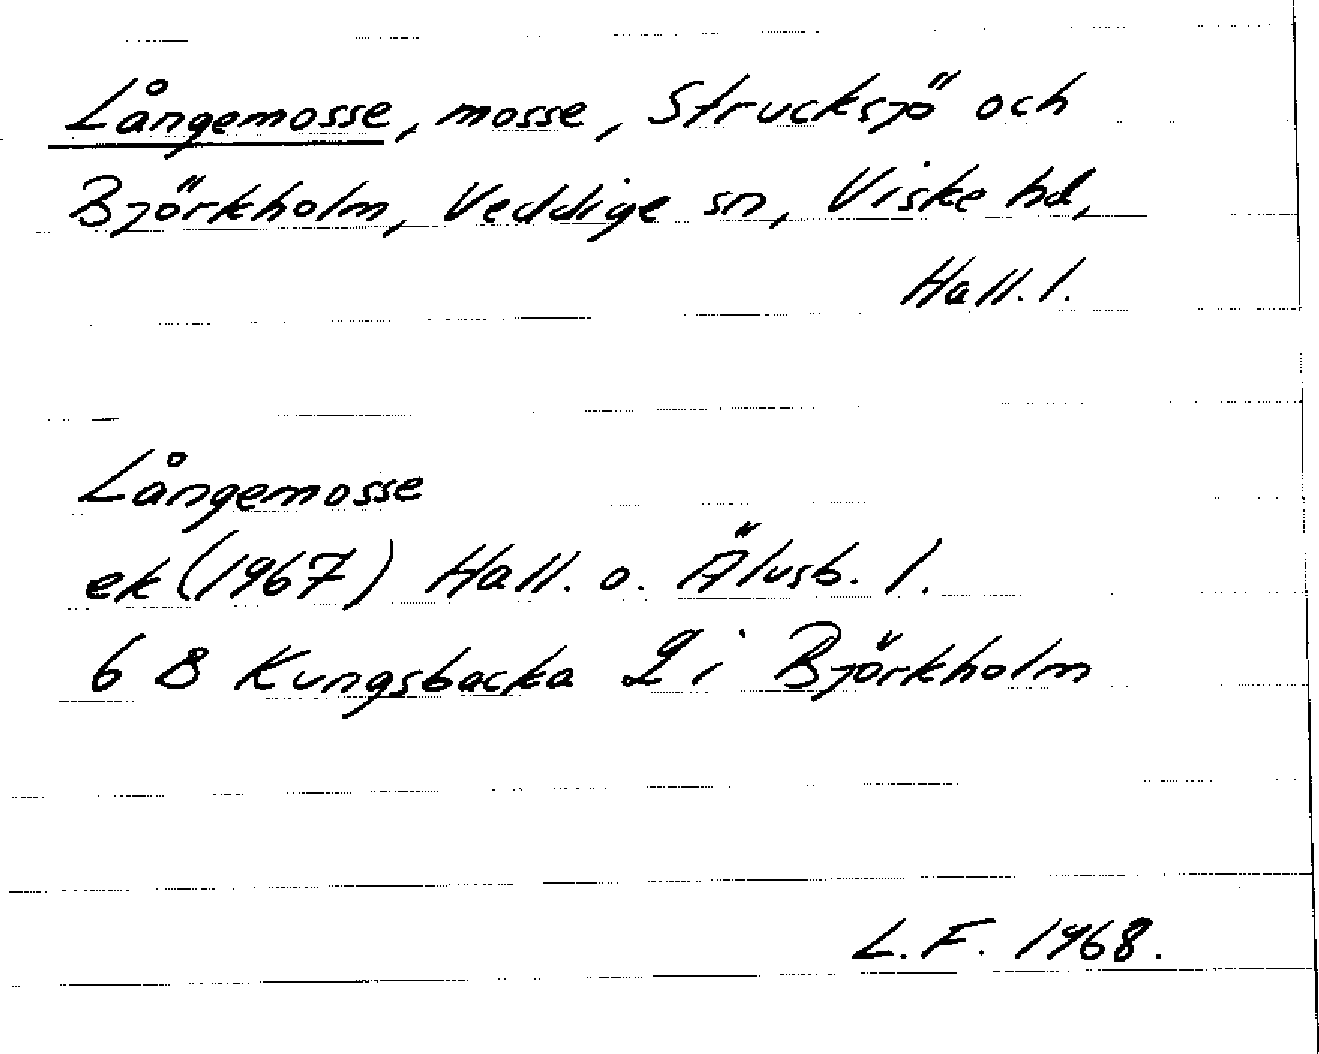 Långemosse, mosse, Strucksjö och
Björkholm, Veddige sn, Viske hd,
Hall. l.
Långemosse
ek (1967) Hall. o. Älvsb. l.
6 B Kungsbacka 2 i Björkholm
L. F. 1968.